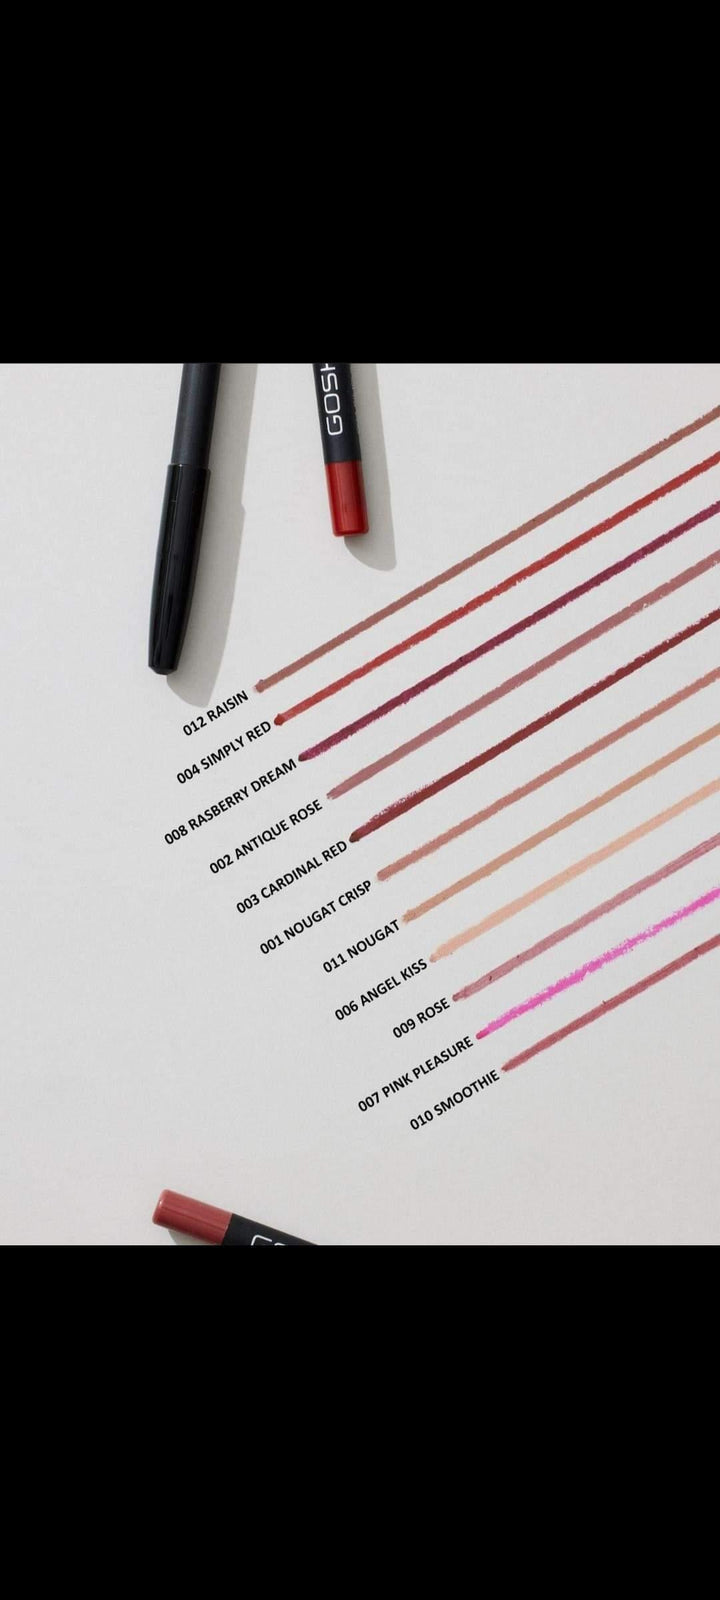 GOSH
012 RAISIN
004 SIMPLY RED
008 RASBERRY DREAM
002 ANTIQUE ROSE
003 CARDINAL RED
001 NOUGAT CRISP
011 NOUGAT
006 ANGEL KISS
009 ROSE
007 PINK PLEASURE
010 SMOOTHIE